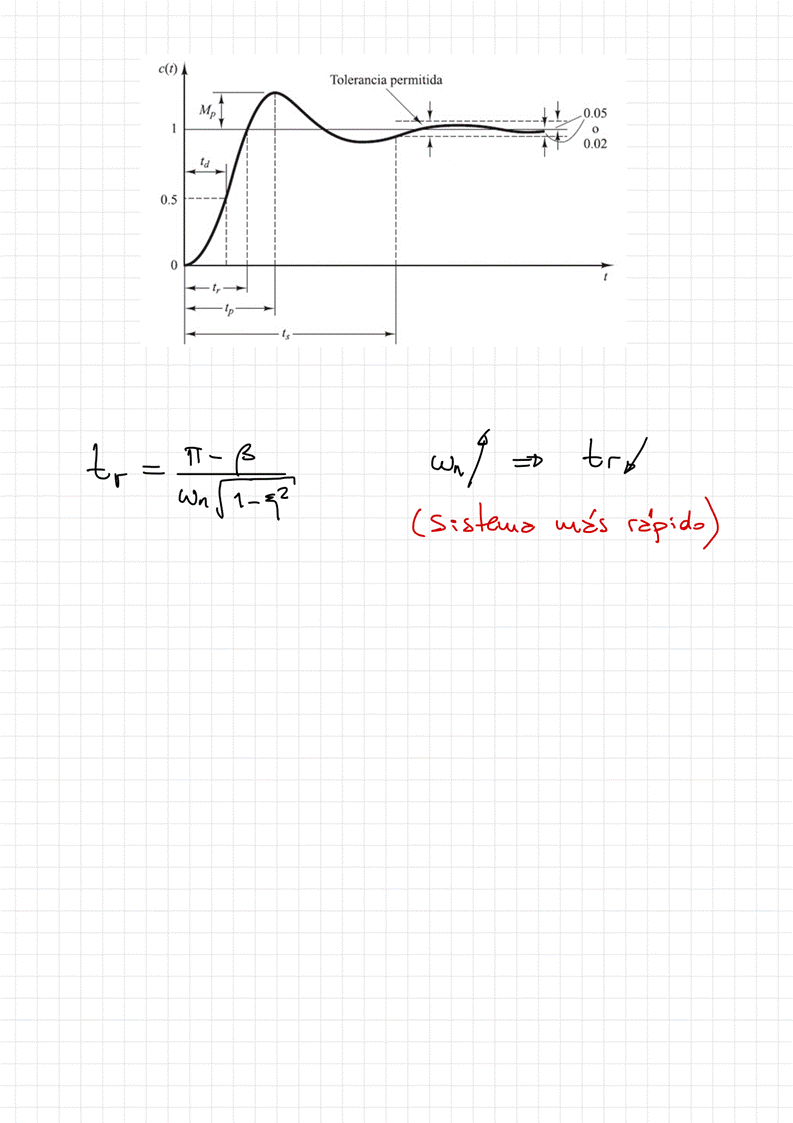 c(t)
Tolerancia permitida
M_p
0.05
o
0.02
1
t_d
0.5
0
t
t_r
t_p
t_s
t_r = (π - β) / (ω_n √(1 - ξ²))
ω_n ↑ ⇒ tr ↓
(sistema más rápido)